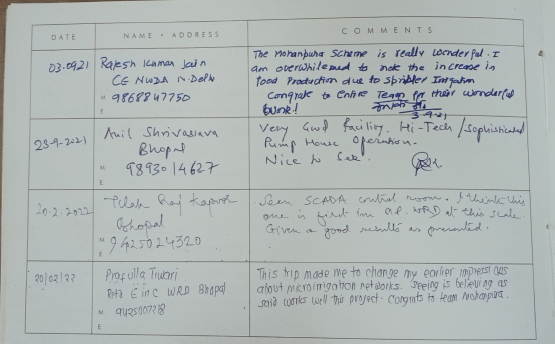 DATE NAME · ADDRESS COMMENTS
03.0921 Rajesh Kumar Jain
CE NWDA N.Delhi
M 9868847750
E
The Mohanpura Scheme is really wonderful. I
am overwhelemed to note the increase in
food Production due to Sprinkler Irrigation
Congrats to Entire Team for their wonderful
Work!
3-9-21
23-9-2021 Anil Shrivastava
Bhopal
M 9893014627
E
Very Good facility. Hi-Tech/Sophisticated
Pump House Operation.
Nice to See.
20.2.2022 Tilak Raj Kapoor
Bhopal
M 9425024320
E
Seen SCADA control room. I think this
one is first in M.P. WRD at this scale.
Given a good results as presented.
20/02/22 Prafulla Tiwari
Retd E in C WRD Bhopal
M 9425007218
E
This trip made me to change my earlier impressions
about microirrigation networks. Seeing is believing as
said works well this project. Congrats to team Mohanpura.